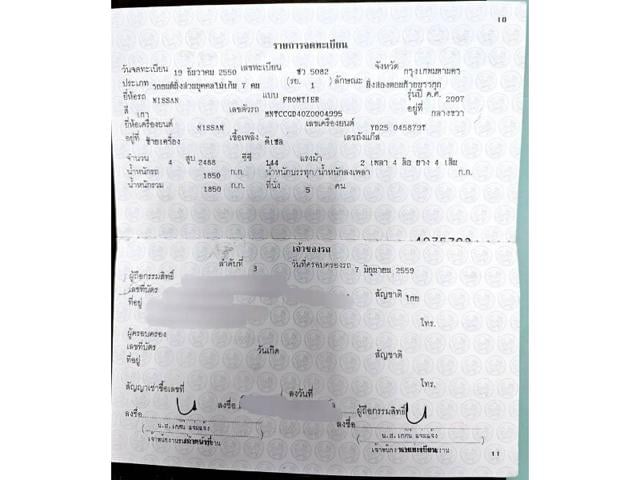 10
รายการจดทะเบียน
วันจดทะเบียน 19 ธันวาคม 2550 เลขทะเบียน ชว 5082 จังหวัด กรุงเทพมหานคร
ประเภท รถยนต์นั่งส่วนบุคคลไม่เกิน 7 คน (รย. 1 ) ลักษณะ นั่งสองตอนท้ายบรรทุก
ยี่ห้อรถ NISSAN แบบ FRONTIER รุ่นปี ค.ศ. 2007
สี เทา เลขตัวรถ MNTCCGD40Z0004995 อยู่ที่ กลางขวา
ยี่ห้อเครื่องยนต์ NISSAN เลขเครื่องยนต์ YD25 045879T
อยู่ที่ ซ้ายเครื่อง เชื้อเพลิง ดีเซล เลขถังแก๊ส
จำนวน 4 สูบ 2488 ซีซี 144 แรงม้า 2 เพลา 4 ล้อ ยาง 4 เส้น
น้ำหนักรถ 1850 ก.ก. น้ำหนักบรรทุก/น้ำหนักลงเพลา ก.ก.
น้ำหนักรวม 1850 ก.ก. ที่นั่ง 5 คน
เจ้าของรถ
ลำดับที่ 3 วันที่ครอบครองรถ 7 มิถุนายน 2559
ผู้ถือกรรมสิทธิ์
เลขที่บัตร สัญชาติ ไทย
ที่อยู่
โทร.
ผู้ครอบครอง
เลขที่บัตร วันเกิด สัญชาติ
ที่อยู่
โทร.
สัญญาเช่าซื้อเลขที่ ลงวันที่
ลงชื่อ ลงชื่อ ผู้ถือกรรมสิทธิ์
ลงชื่อ
( น.ส.เกศิน แจ่มแจ้ง ) ( น.ส.เกศิน แจ่มแจ้ง )
11